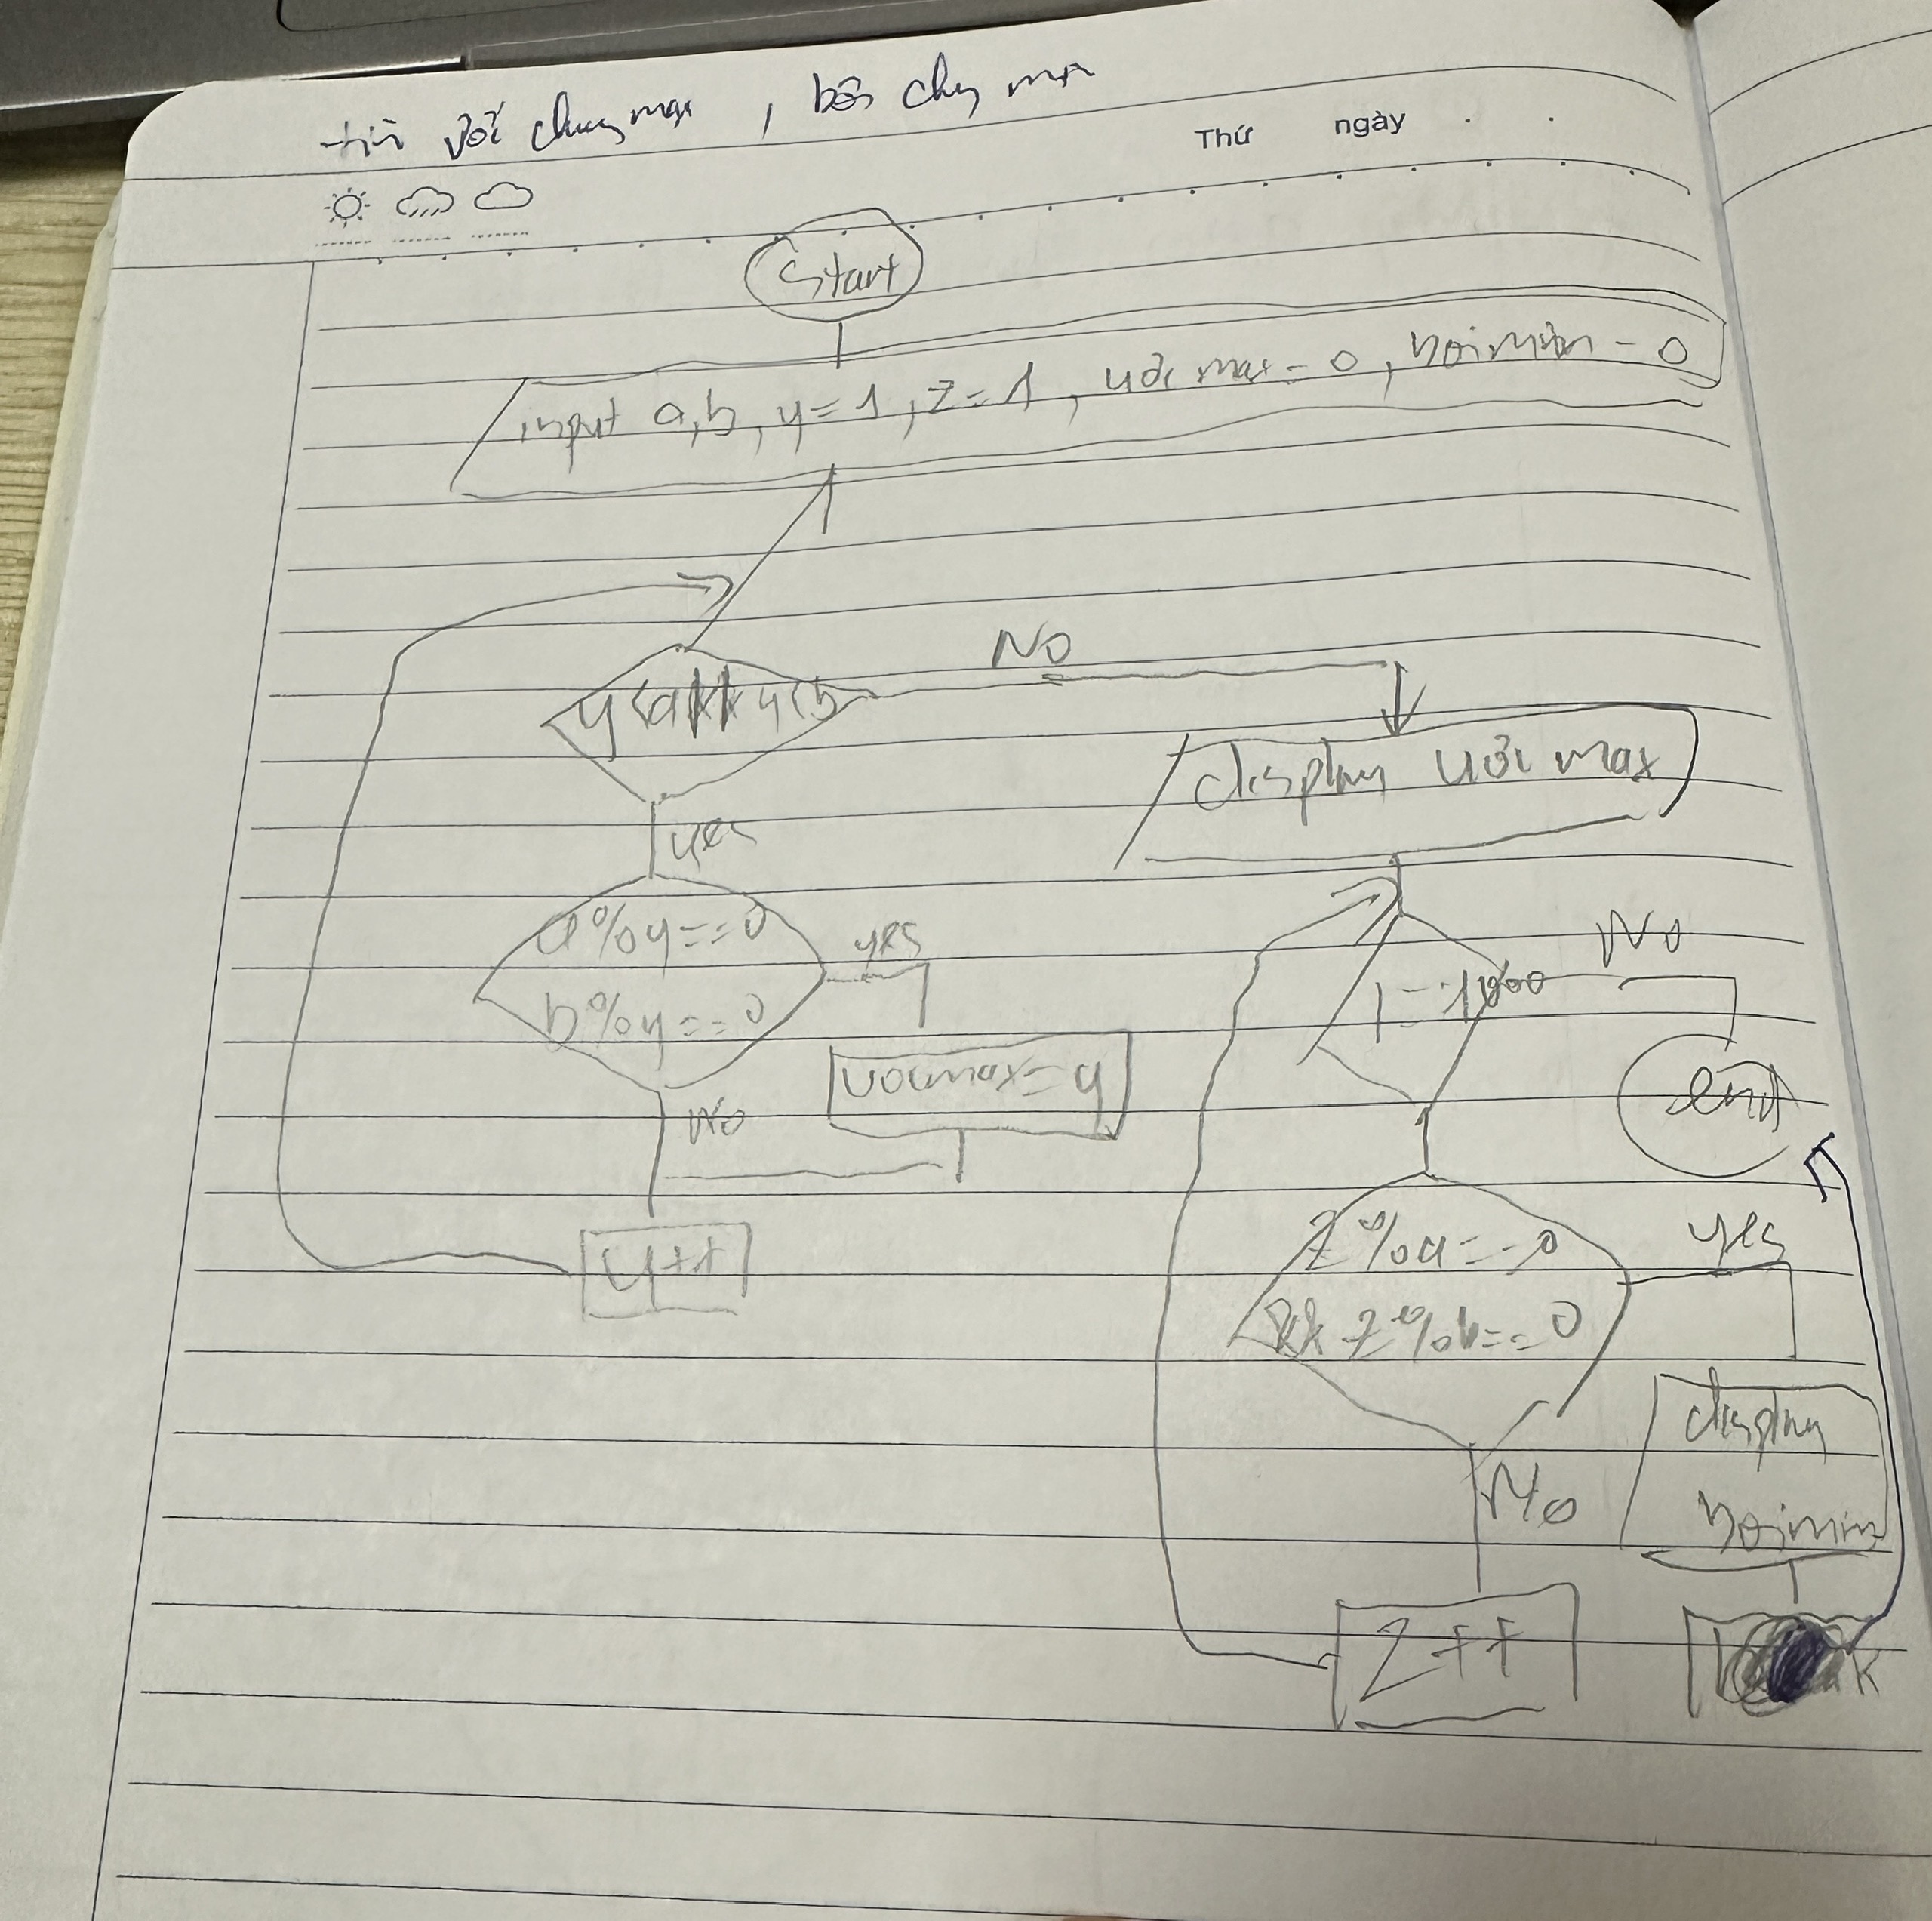 ước chung max, bội chung min
Thứ ngày
Start
input a, b, y = 1, z = 1, ước max = 0, bội min = 0
No
display ước max
yes
a%y==0
b%y==0
yes
No
ướcmax = y
No
end
y++
z%a==0
&& z%b==0
yes
display
bội min
No
z++